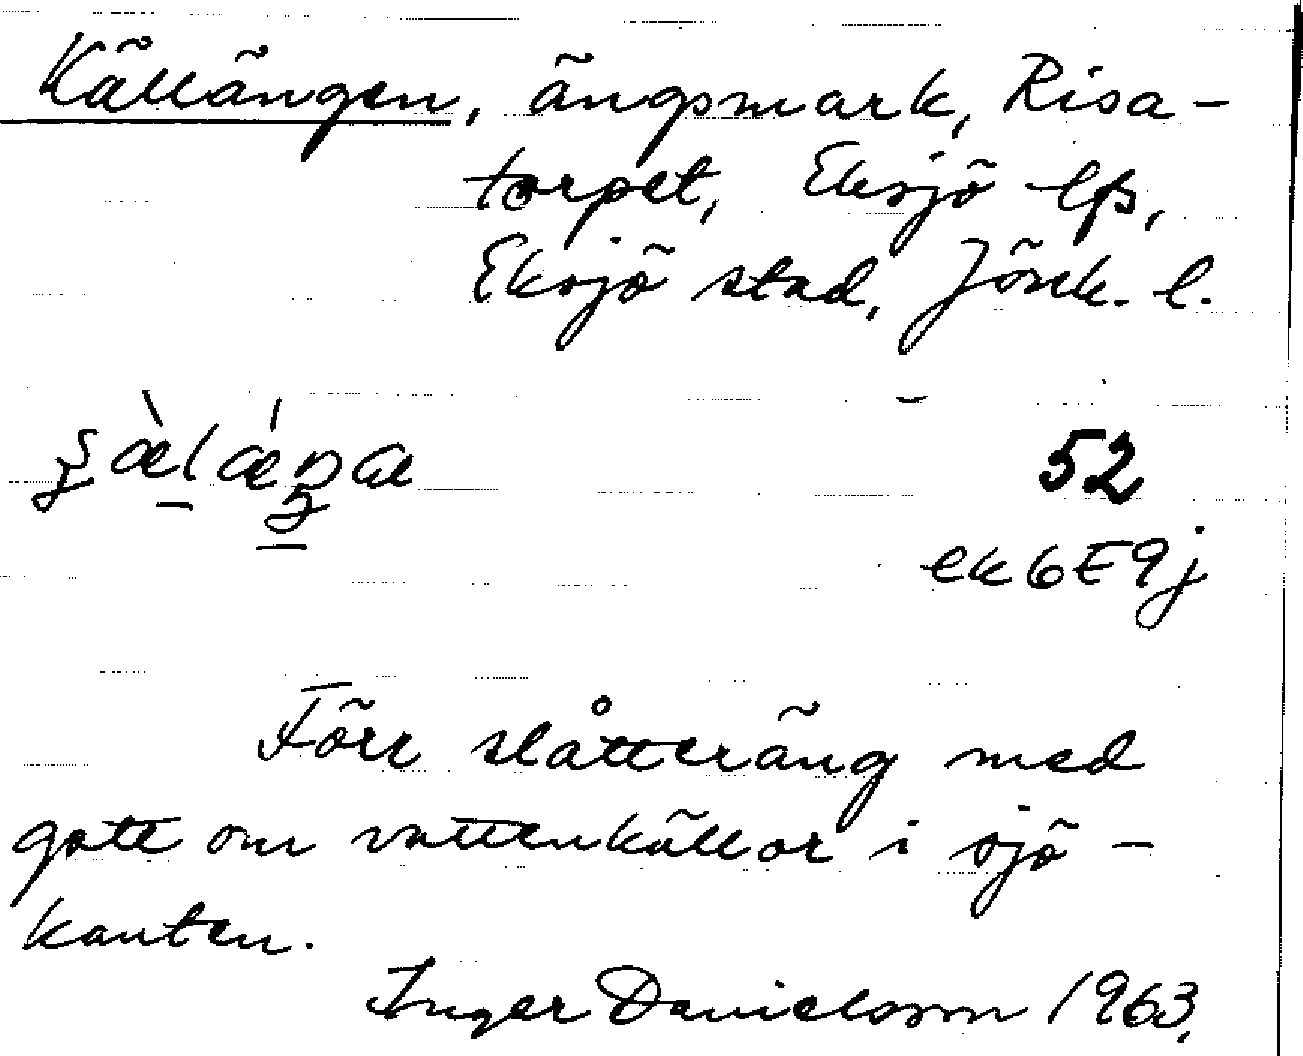 Källängen, ängsmark, Risa-
torpet, Eksjö lfs,
Eksjö stad, Jönk. l.
52
ek6E9j
Förr slåtteräng med
gott om vattenkällor i sjö-
kanten.
Inger Danielsson 1963.